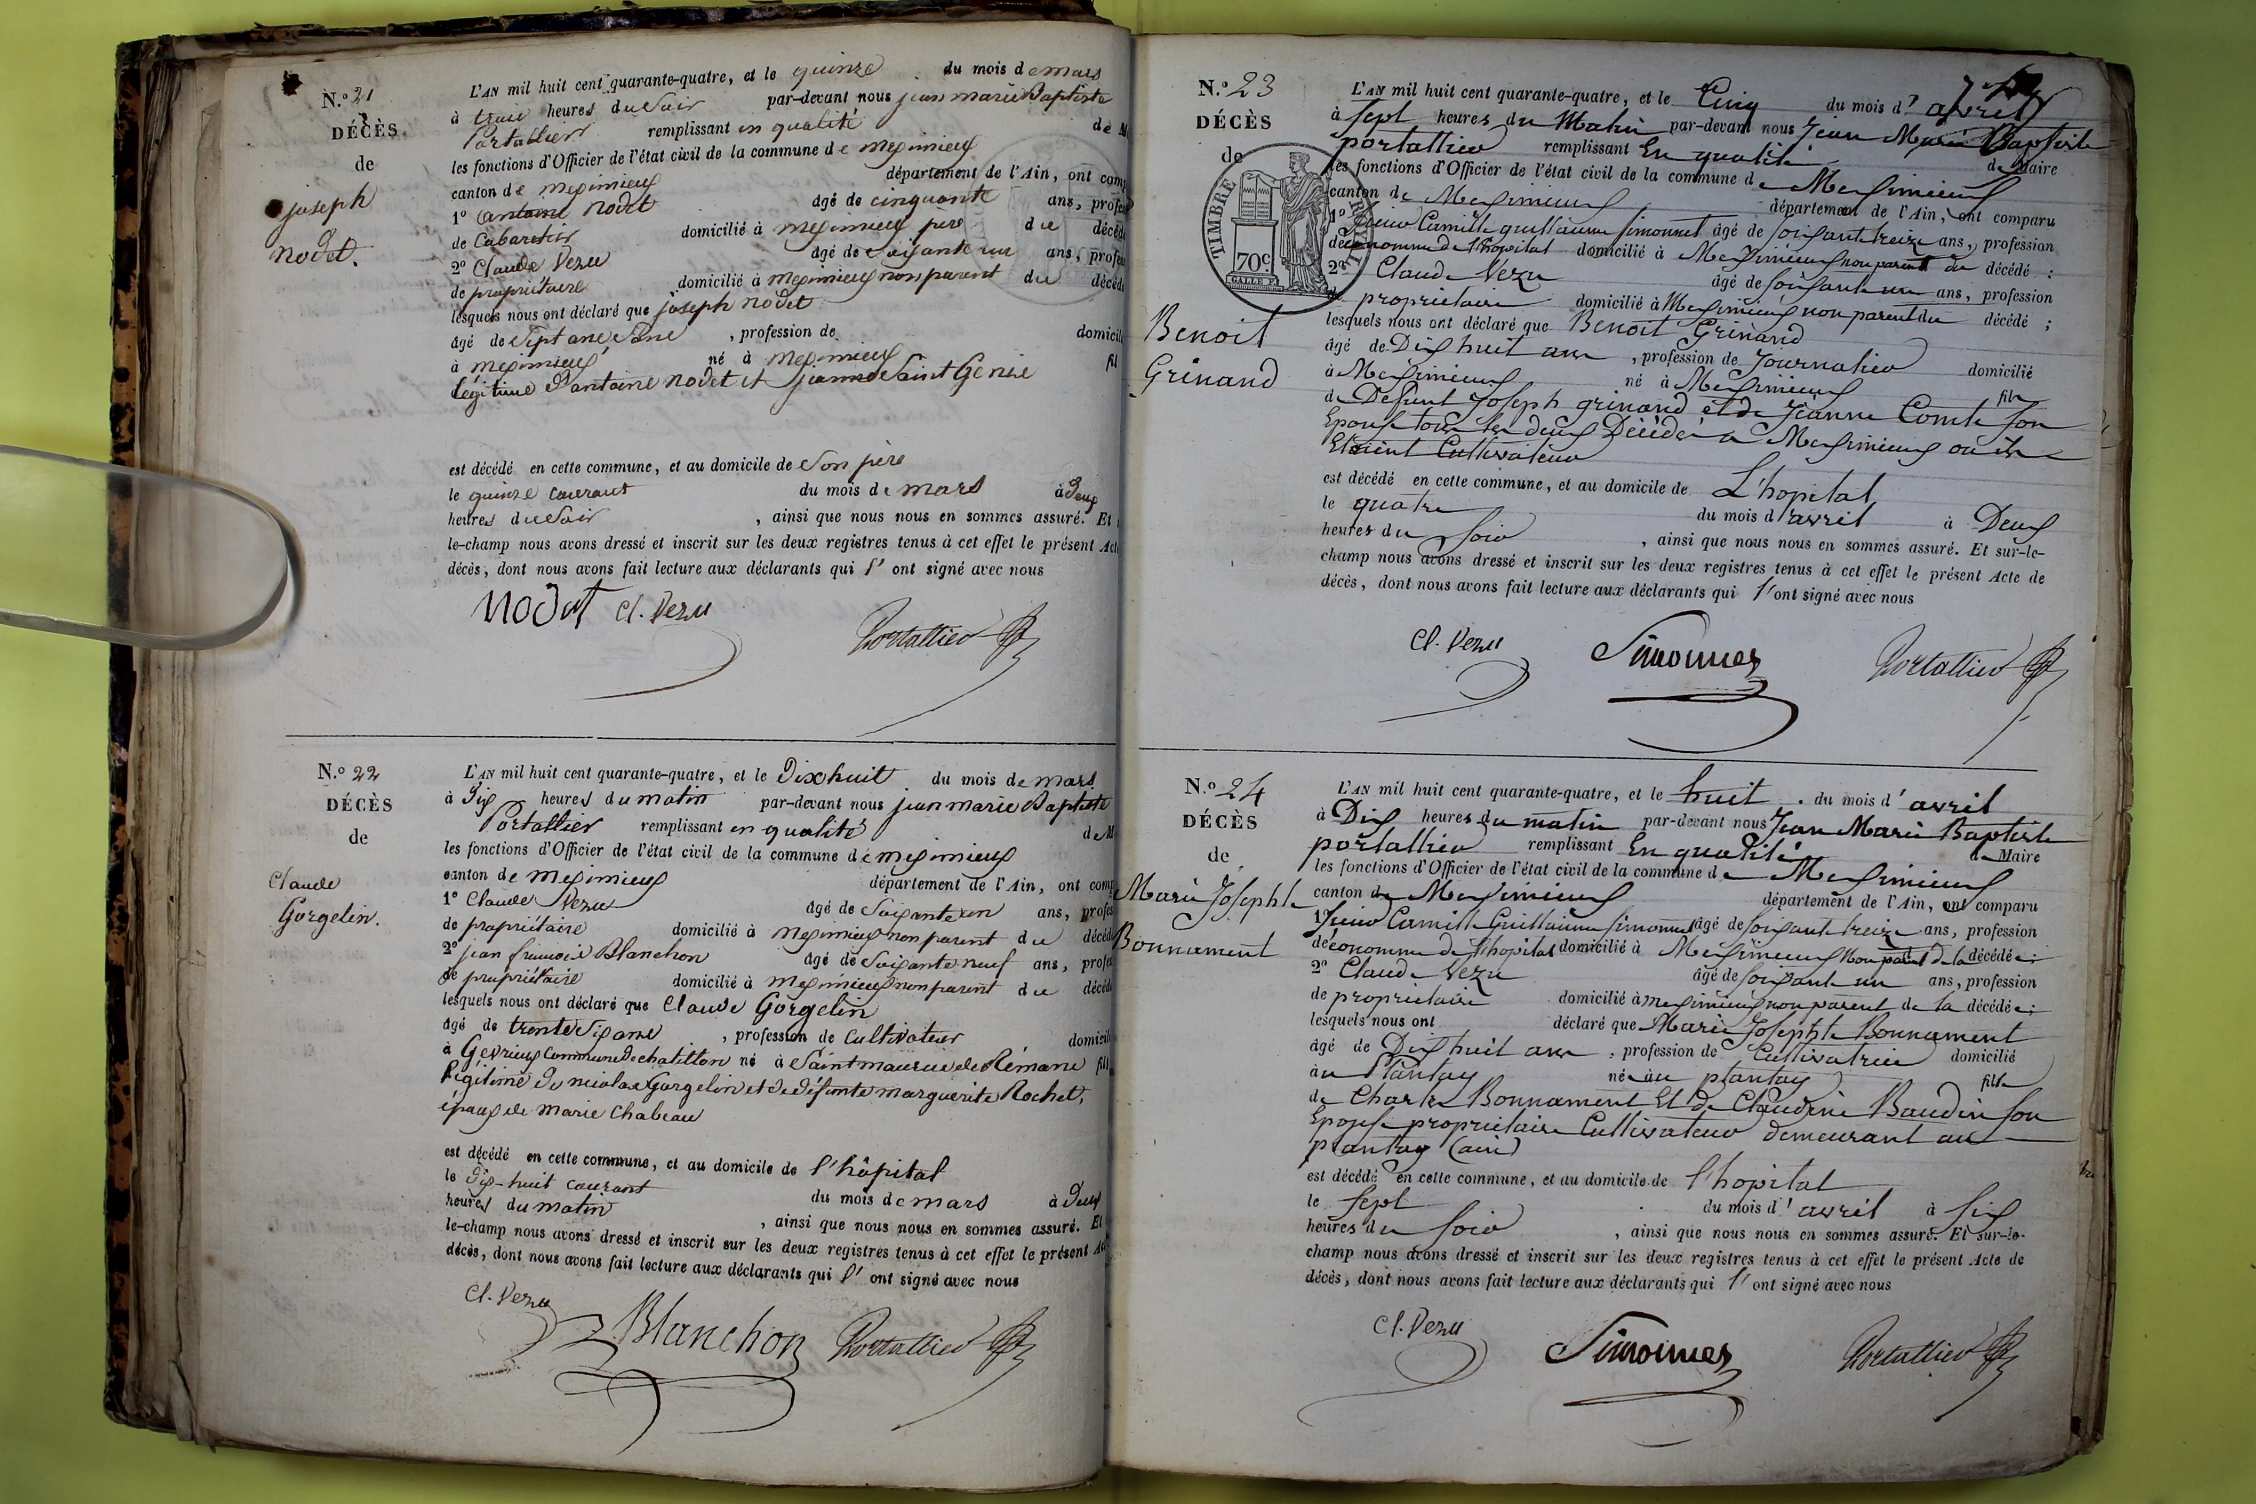 N.º 21
DÉCÈS
de
joseph
nodet.
L'AN mil huit cent quarante-quatre, et le quinze du mois de mars
à trois heures du soir par-devant nous jean marie Baptiste
Portallier remplissant en qualité de M
les fonctions d'Officier de l'état civil de la commune de meximieux
canton de meximieux département de l'Ain, ont comp
1º antoine nodet âgé de cinquante ans, profes
de Cabaretier domicilié à meximieux père du décédé
2º Claude Vezu âgé de soixante un ans, profes
de propriétaire domicilié à meximieux non parent du décédé
lesquels nous ont déclaré que joseph nodet
âgé de sept ans , profession de domicili
à meximieux né à meximieux fil
légitime d'antoine nodet et jeanne Saint Genis
est décédé en cette commune, et au domicile de son père
le quinze courant du mois de mars à deux
heures du soir , ainsi que nous nous en sommes assuré. Et
le-champ nous avons dressé et inscrit sur les deux registres tenus à cet effet le présent Acte
décès, dont nous avons fait lecture aux déclarants qui l' ont signé avec nous
nodet Cl. Vezu Portallier
N.º 22
DÉCÈS
de
Claude
Gorgelin.
L'AN mil huit cent quarante-quatre, et le Dix huit du mois de mars
à dix heures du matin par-devant nous jean marie Baptiste
Portallier remplissant en qualité de M
les fonctions d'Officier de l'état civil de la commune de meximieux
canton de meximieux département de l'Ain, ont comp
1º Claude Vezu âgé de soixante un ans, profes
de propriétaire domicilié à meximieux non parent du décédé
2º jean françois Blanchon âgé de soixante neuf ans, profes
de propriétaire domicilié à meximieux non parent du décédé
lesquels nous ont déclaré que Claude Gorgelin
âgé de trente six ans , profession de Cultivateur domicili
à Gevrieux Commune de chatillon né à Saint maurice de Rémans fil
légitime de nicolas Gorgelin et de défunte marguerite Rochet,
époux de marie Chabeau
est décédé en cette commune, et au domicile de l'hôpital
le dix-huit courant du mois de mars à deux
heures du matin , ainsi que nous nous en sommes assuré. Et
le-champ nous avons dressé et inscrit sur les deux registres tenus à cet effet le présent Ac
décès, dont nous avons fait lecture aux déclarants qui l' ont signé avec nous
Cl. Vezu Blanchon Portallier
N.º 23
DÉCÈS
de
TIMBRE ROYAL
70c
Benoit
Grinand
L'AN mil huit cent quarante-quatre, et le Cinq du mois d'avril
à sept heures du Matin par-devant nous Jean Marie Baptiste
portallier remplissant En qualité de Maire
les fonctions d'Officier de l'état civil de la commune de Meximieux
canton de Meximieux département de l'Ain, ont comparu
1º Camille guillaume simonnet âgé de soixante treize ans, profession
d'économe de l'hopital domicilié à Meximieux non parent du décédé ;
2º Claude Vezu âgé de soixante un ans, profession
de propriétaire domicilié à Meximieux non parent du décédé ;
lesquels nous ont déclaré que Benoit Grinand
âgé de Dix huit ans , profession de Journalier domicilié
à Meximieux né à Meximieux fils
de Defunt Joseph grinand et de Jeanne Comte son
Epouse tous les deux Décédés a Meximieux ou ils
Etoient Cultivateur
est décédé en cette commune, et au domicile de L'hopital
le quatre du mois d'avril à Deux
heures du soir , ainsi que nous nous en sommes assuré. Et sur-le-
champ nous avons dressé et inscrit sur les deux registres tenus à cet effet le présent Acte de
décès, dont nous avons fait lecture aux déclarants qui l' ont signé avec nous
Cl. Vezu Simonnet Portallier
N.º 24
DÉCÈS
de
Marie Josephte
Bonnament
L'AN mil huit cent quarante-quatre, et le huit du mois d'avril
à Dix heures du matin par-devant nous Jean Marie Baptiste
portallier remplissant En qualité de Maire
les fonctions d'Officier de l'état civil de la commune de Meximieux
canton de Meximieux département de l'Ain, ont comparu
1º Camille Guillaume simonnet âgé de soixante treize ans, profession
d'économe de l'hopital domicilié à Meximieux Non parent de la décédée ;
2º Claude Vezu âgé de soixante un ans, profession
de propriétaire domicilié à meximieux non parent de la décédée ;
lesquels nous ont déclaré que Marie Josephte Bonnament
âgé de Dix huit ans , profession de Cultivatrice domicilié
au Plantay née au plantay fille
de Charles Bonnament Et de Claudine Baudin son
Epouse propriétaire Cultivateur demeurant au
plantay (ain)
est décédé en cette commune, et au domicile de l'hopital
le sept du mois d'avril à six
heures du soir , ainsi que nous nous en sommes assuré. Et sur-le-
champ nous avons dressé et inscrit sur les deux registres tenus à cet effet le présent Acte de
décès, dont nous avons fait lecture aux déclarants qui l' ont signé avec nous
Cl. Vezu Simonnet Portallier